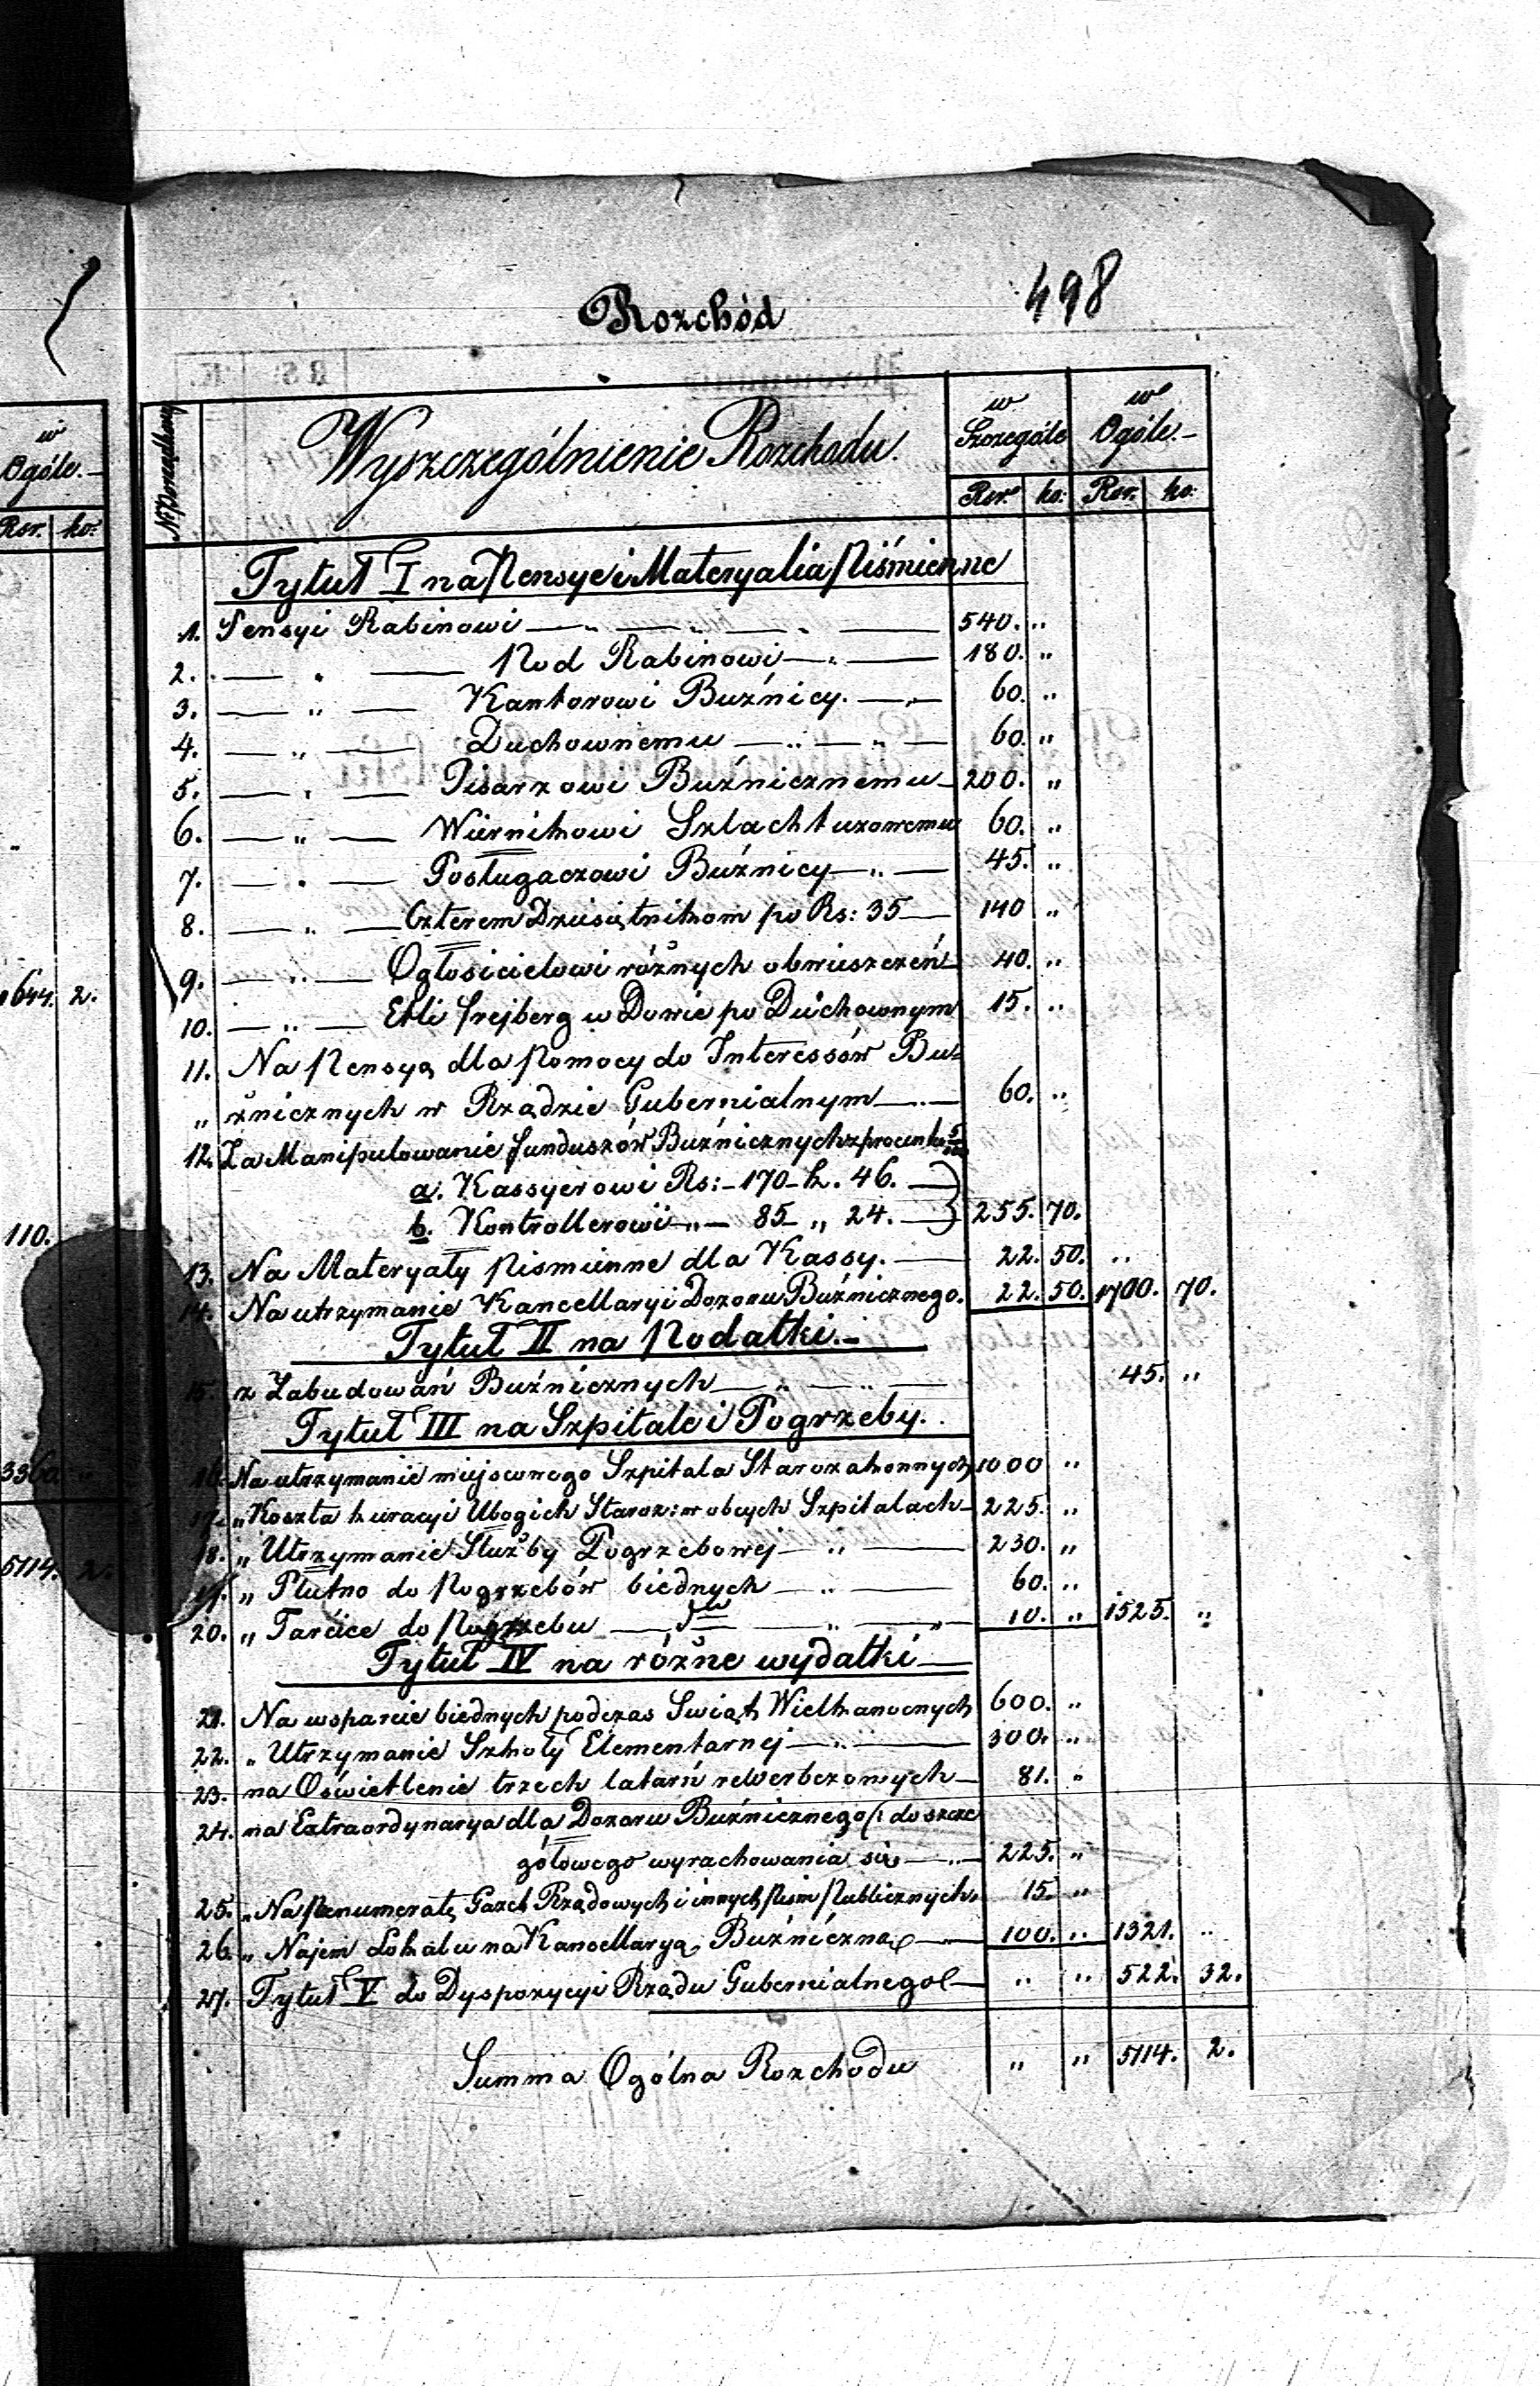 498
Rozchód
w Ogóle.
Rsr. ko:
1644. 2.
110.
3360. "
5114. 2.
N. Porządkowy
Wyszczególnienie Rozchodu.
w Szczególe
w Ogóle.
Rsr. ko: Rsr. ko:
Tytuł I na Pensye i Materyalia Piśmienne
1. Pensyi Rabinowi — " — " — " — 540. "
2. — " — Pod Rabinowi — " — 180. "
3. — " — Kantorowi Buźnicy. — " — 60. "
4. — " — Duchownemu — " — " — 60. "
5. — " — Pisarzowi Buźnicznemu — 200. "
6. — " — Wiernikowi Szlachtuzowemu 60. "
7. — " — Posługaczowi Buźnicy — " — 45. "
8. — " — Czterem Dziesiętnikom po Rs: 35 — 140 "
9. — " — Ogłosicielowi różnych obwieszczeń — 40. "
10. — " — Etli Frejberg w Dowie po Duchownym 15. "
11. Na Pensyą dla Pomocy do Interessów Bu-
" źnicznych w Rządzie Gubernialnym — " — 60. "
12. Za Manipulowanie funduszów Buźnicznych z procentu 5/100
a. Kassyerowi Rs: - 170 - k. 46. —
b. Kontrollerowi — " — 85 — " 24. — } 255. 70.
13. Na Materyały Pismienne dla Kassy. — 22. 50. "
14. Na utrzymanie Kancellaryi Dozoru Buźnicznego. 22. 50. 1700. 70.
Tytuł II na Podatki. —
15. z Zabudowań Buźnicznych — " — " — 45. "
Tytuł III na Szpitale i Pogrzeby.
16. Na utrzymanie miejscowego Szpitala Starozakonnych 1000 "
17. " Koszta kuracyi Ubogich Staroz: w obcych Szpitalach — 225. "
18. " Utrzymanie Służby Pogrzebowej — " — 230. "
19. " Płutno do Pogrzebów biednych — " — 60. "
20. " Tarcice do Pogrzebu — " — 10. " 1525. "
Tytuł IV na różne wydatki —
21. Na wsparcie biednych podczas Swiąt Wielkanocnych 600. "
22. " Utrzymanie Szkoły Elementarnej — " — 300. "
23. na Oświetlenie trzech latarń rewerberowych — 81. "
24. na Extraordynarya dla Dozoru Buźnicznego (: do szcze
gółowego wyrachowania się — " — 225. "
25. " Na Prenumeratę Gazet Rządowych i innych Pism Publicznych. 15. "
26. " Najem Lokalu na Kancellaryą Buźniczną — 100. " 1321. "
27. Tytuł V do Dyspozycyi Rządu Gubernialnego — " " 522. 32.
Summa Ogólna Rozchodu " " 5114. 2.